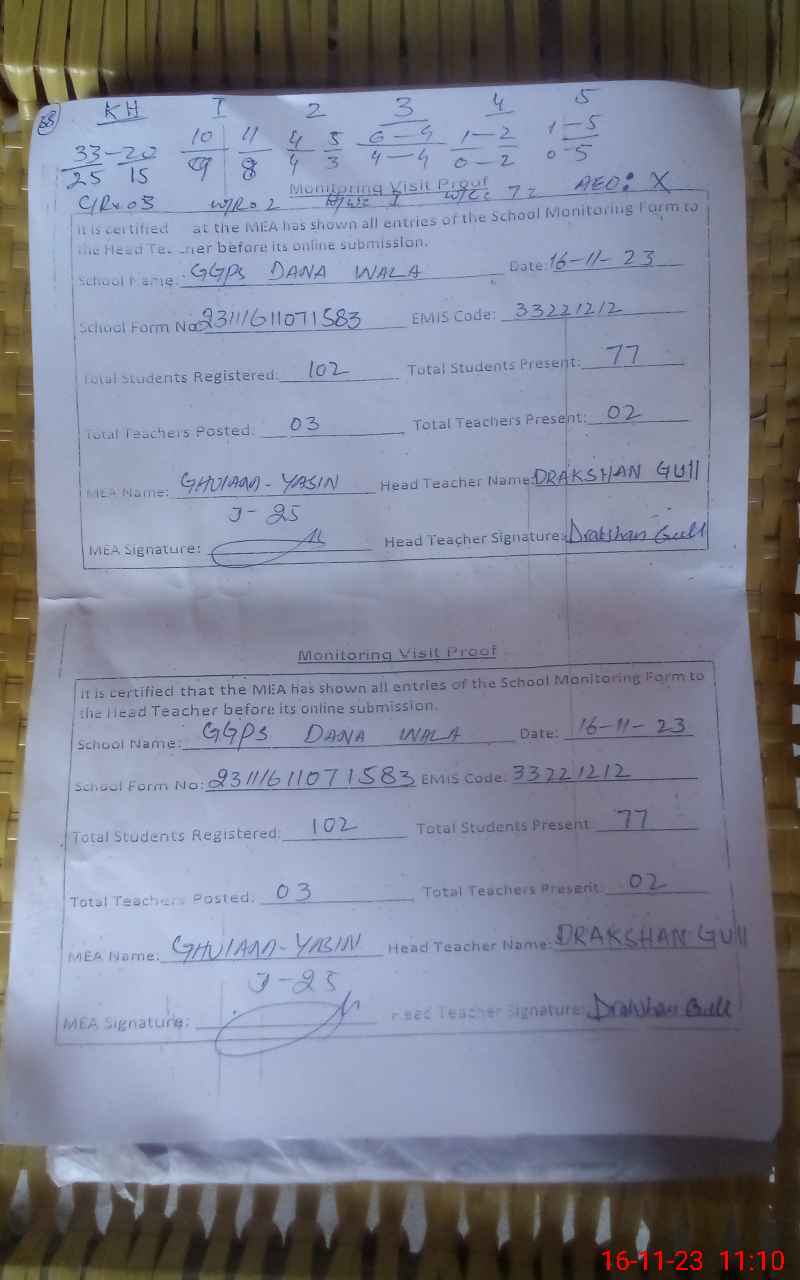 KH I 2 3 4 5
33-20 10 11 4 5 6-4 1-2 1-5
25 15 9 8 4 3 4-4 0-2 0-5
C/R=03 W/R=2 I 7= AEO: X
Monitoring Visit Proof
It is certified at the MEA has shown all entries of the School Monitoring Form to
the Head Te. .ner before its online submission.
School Name: GGPS DANA WALA Date: 16-11-23
School Form No: 23111611071583 EMIS Code: 33221212
Total Students Registered: 102 Total Students Present: 77
Total Teachers Posted: 03 Total Teachers Present: 02
MEA Name: GHULAM-YASIN Head Teacher Name: DRAKSHAN GUll
J-25
MEA Signature: Head Teacher Signature: Drakshan Gull
Monitoring Visit Proof
It is certified that the MEA has shown all entries of the School Monitoring Form to
the Head Teacher before its online submission.
School Name: GGPS DANA WALA Date: 16-11-23
School Form No: 23111611071583 EMIS Code: 33221212
Total Students Registered: 102 Total Students Present: 77
Total Teachers Posted: 03 Total Teachers Present: 02
MEA Name: GHULAM-YASIN Head Teacher Name: DRAKSHAN GUll
J-25
MEA Signature: Head Teacher Signature: Drakshan Gull
16-11-23 11:10